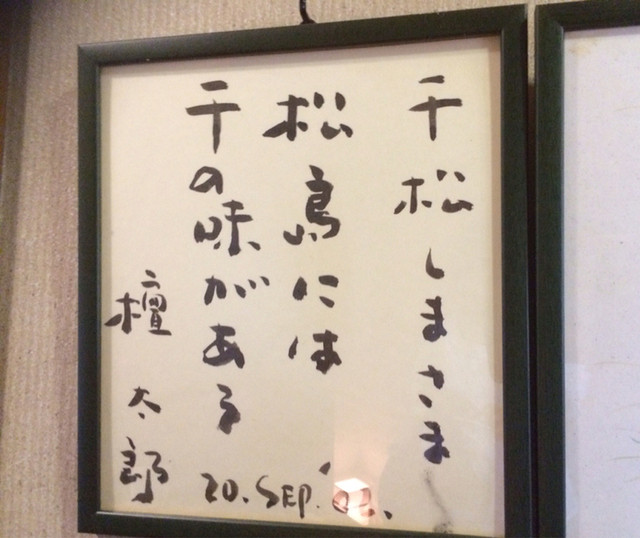 千松しまさま
松島には
千の味がある
檀太郎
20. SEP.'02.